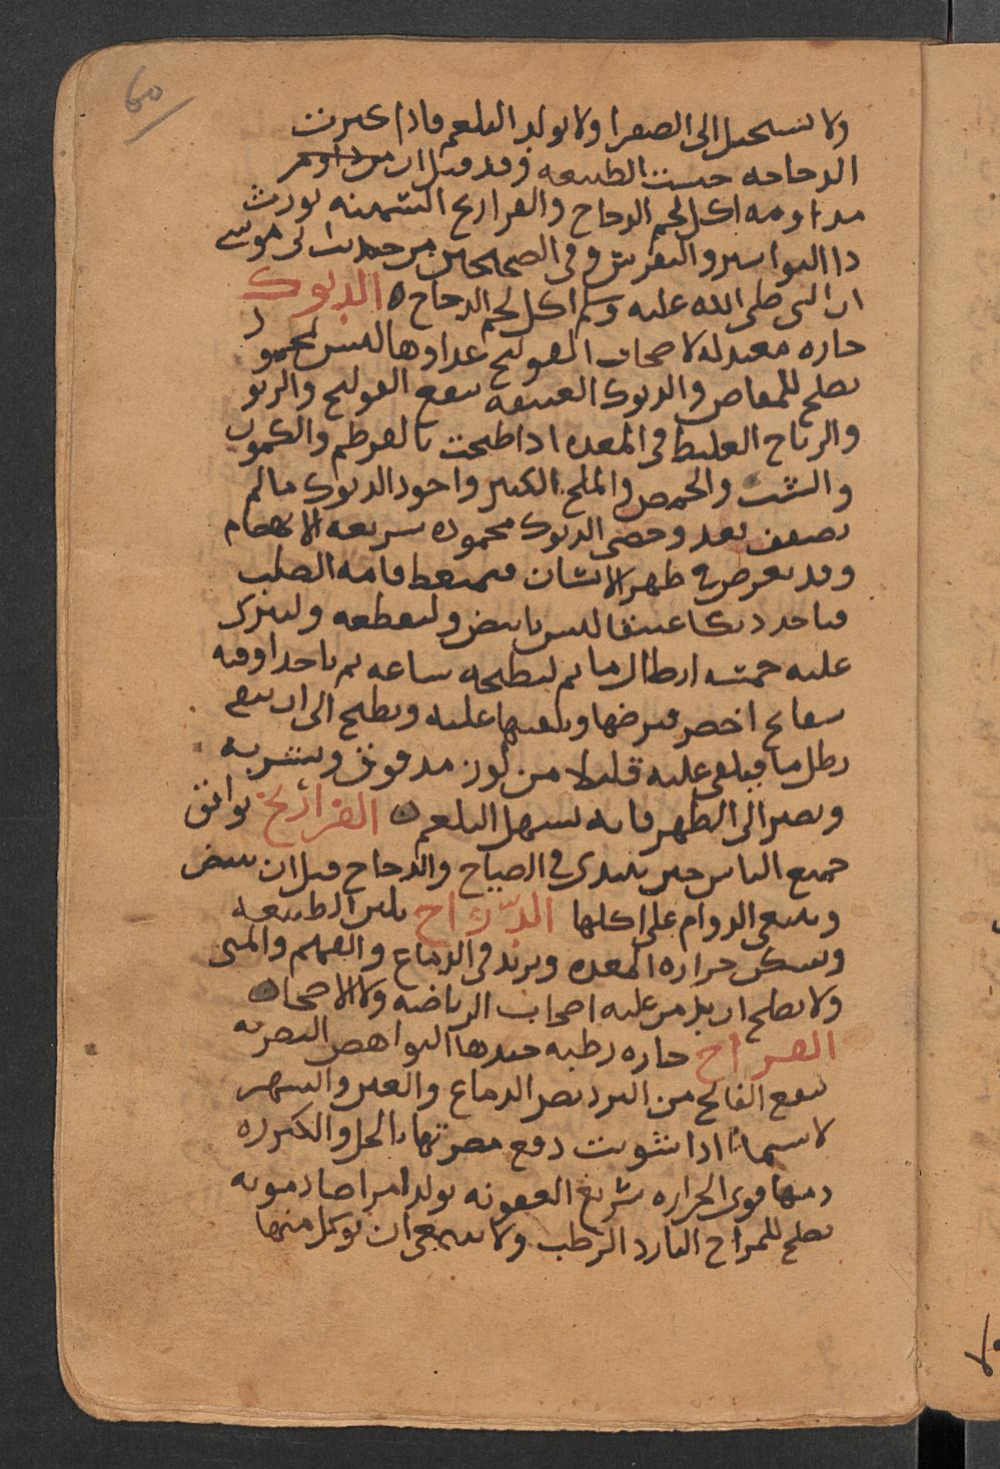 60
ولا تستحيل الى الصفرا ولا تولد البلغم فاذا كبرت
الدجاجه حبست الطبيعه وقد قيل ان من داوم
مداومه اكل لحم الدجاج والفراريج السمينه يورث
دا البواسير والنقرس وفى الصحيحين من حديث ابى موسى
ان النبى صلى الله عليه وسلم اكل لحم الدجاج ه الديوك
حاره معتدله لاصحاب القولنج غداوها ليس بمحمود
يصلح للمفاصل والديوك العتيقه ينفع القولنج والربو
والرياح الغليظ فى المعده اذا طبخت بالقرطم والكمون
والشبت والحمص والملح الكثير واجود الديوك ما لم
يصعف بعد وخصى الديوك محموده سريعه الانهضام
وقد يعرض فى ظهر الانسان فيمتعط فامه الصلب
فياخد ديكا عتيقا ليس بابيض وليقطعه وليترك
عليه خمسه ارطال ما ثم ليطبخه ساعه ثم ياخد اوقيه
بسفايج اخضر فيرضها ويلقيها عليه ويطبخ الى ان يبقى
رطل ما فيلقى عليه قليلا من لوز مدقوق ويشربه
ويصير الى الظهر فانه يسهل البلغم ه الفراريج توافق
جميع الناس حين يبتدى فى الصياح والدجاج قبل ان تبيض
وينبغى الدوام على اكلها الدّرّاج يلين الطبيعه
ويسكن حراره المعده ويزيد فى الدماغ والفهم والمنى
ولا يصلح ان يدمن عليه اصحاب الرياضه ولا الاصحا ه
الفراخ حاره رطبه جيدها النواهض البصريه
ينفع الفالج من البرد يضر الدماغ والعين والسهر
لا سيما اذا شويت دفع مضرتها بالخل والكزبره
دمها قوى الحراره سريع العفونه يولد امراضا دمويه
يصلح للمزاج البارد الرطب ولا ينبغى ان يوكل منها